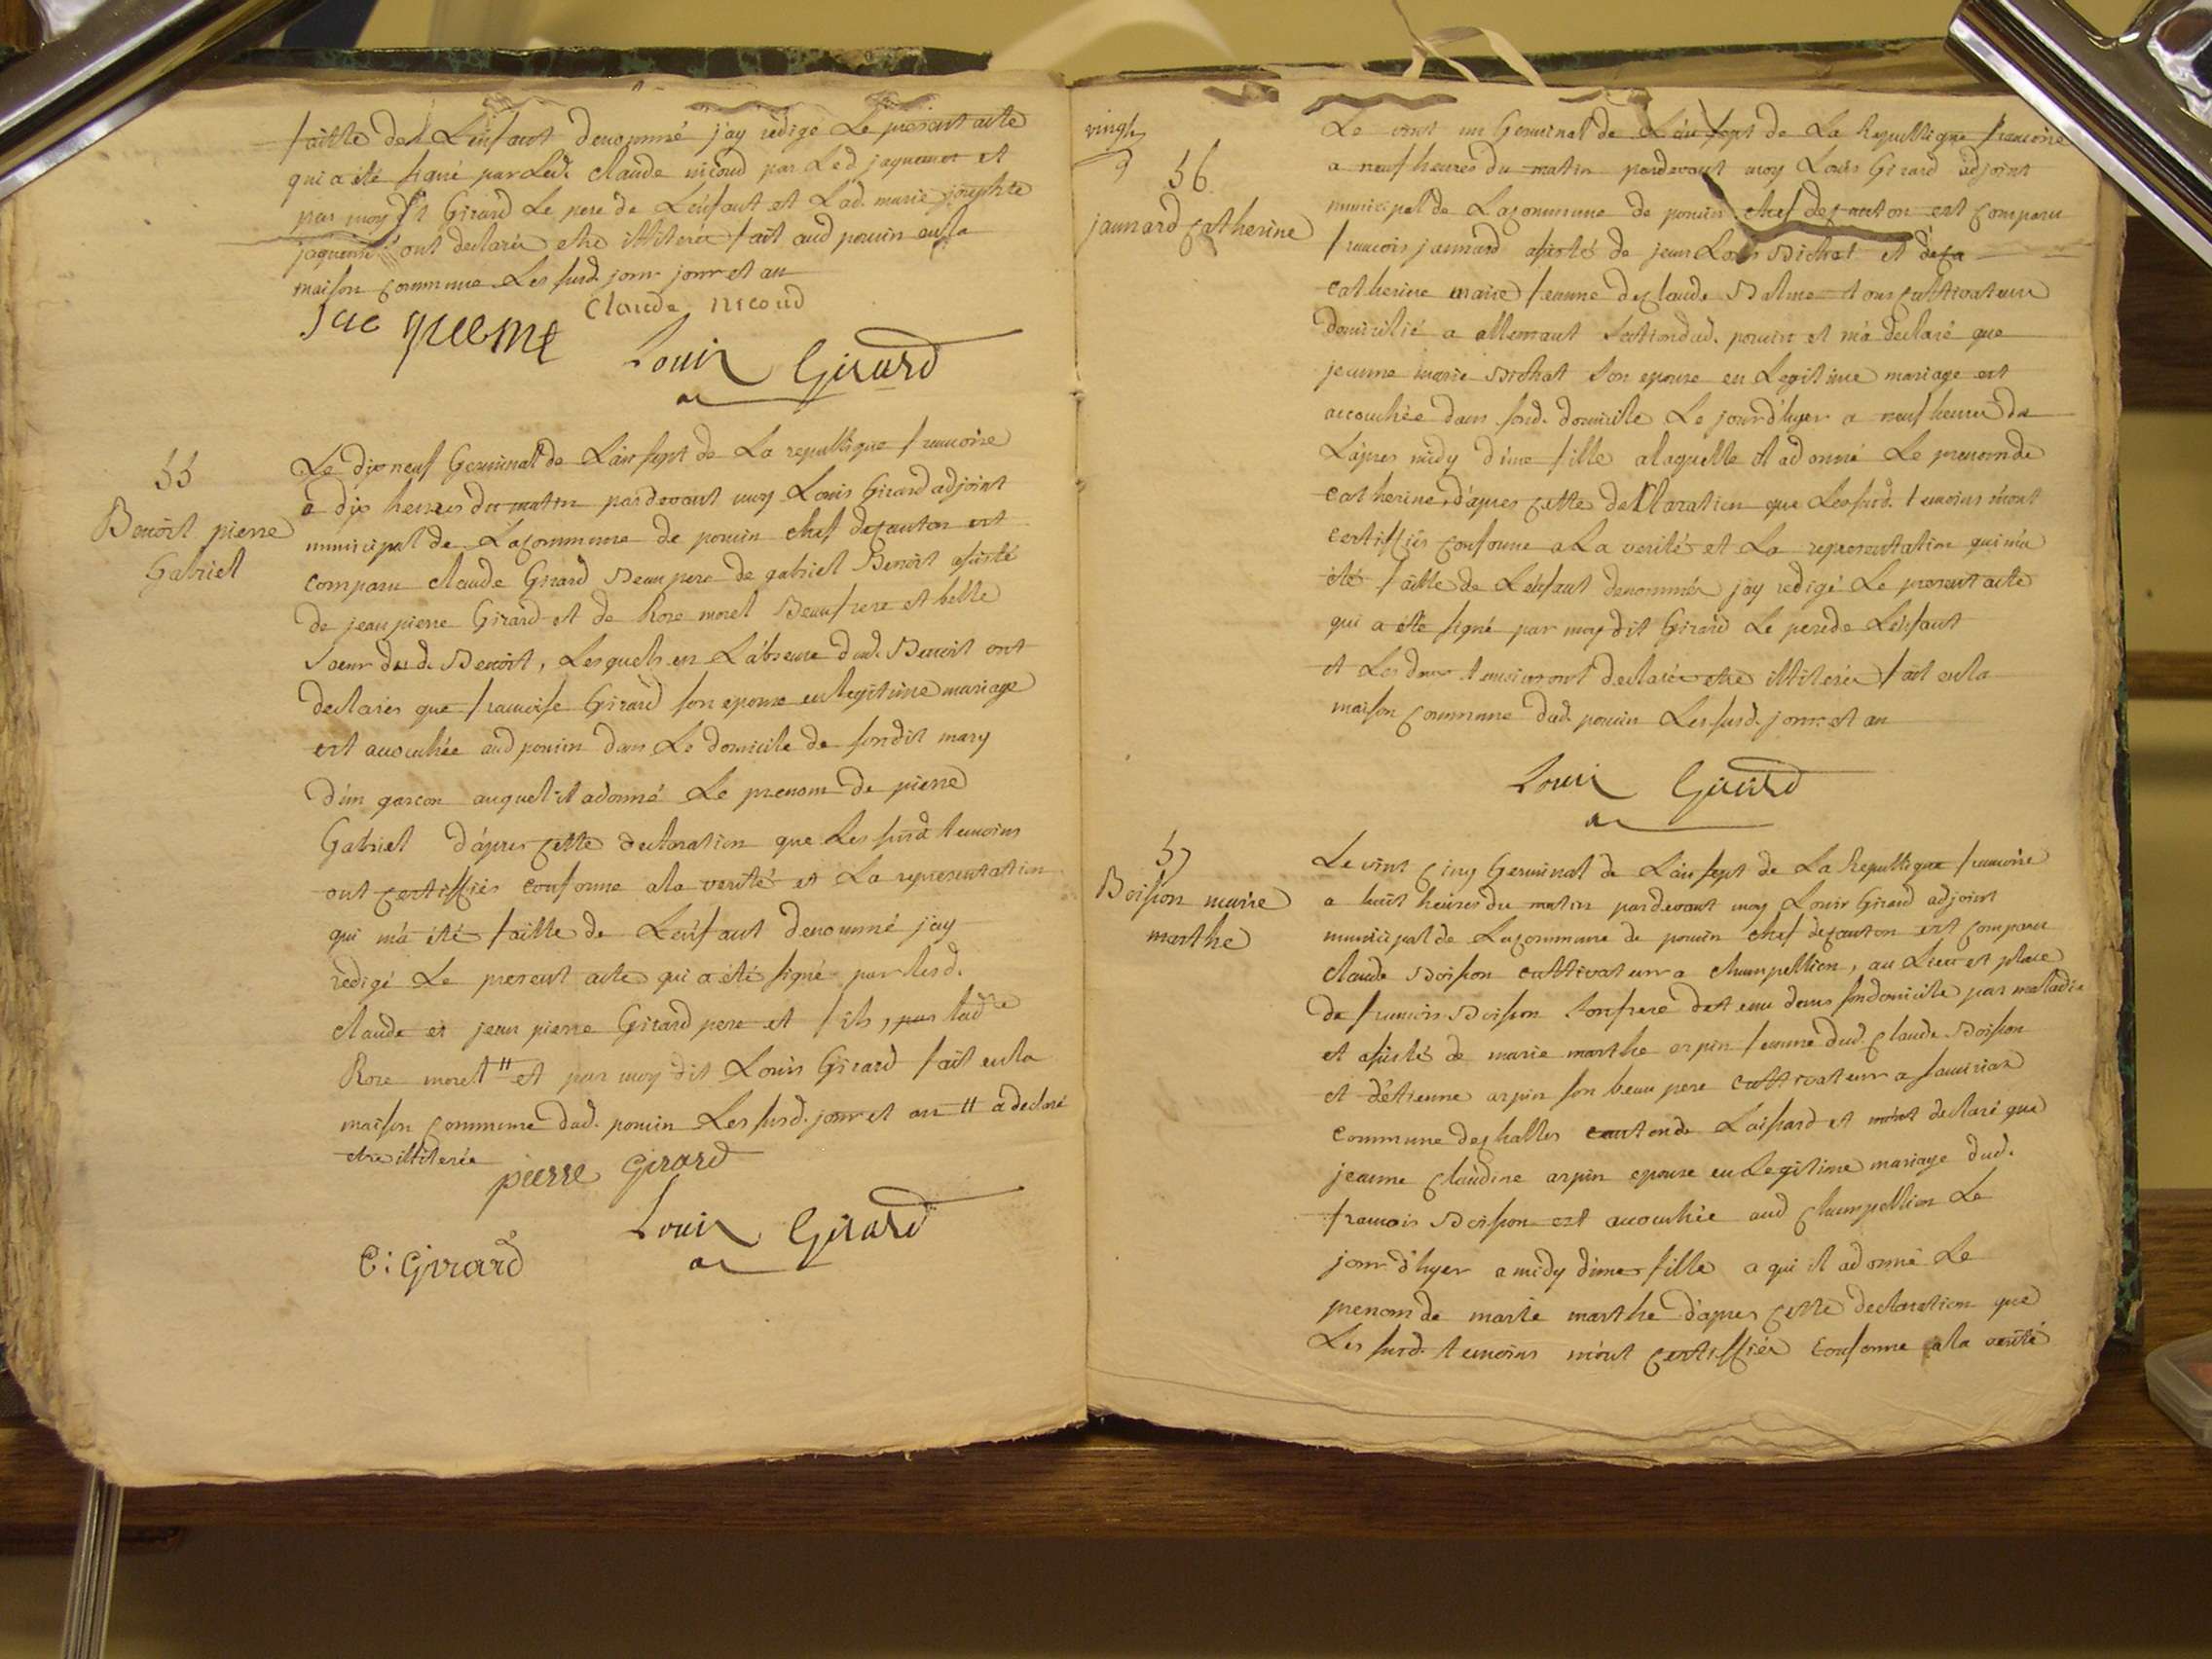 faitte de Lenfant denommé j'ay redigé Le present acte
qui a été signé par Led. claude nicoud par Led jaquemet et
par moy dt Girard Le pere de Lenfant et Lad. marie josephte
jaquemet ont declarés etre illiterés fait aud poncin en la
maison commune Les susd. jour jour et an
Claude nicoud
Jac quemet
Louis Girard
55
Benoit pierre
Gabriel
Le dix neuf Germinal de L'an sept de La republique francoise
a dix heures du matin pardevant moy Louis Girard adjoint
municipal de La commune de poncin chef de canton est
comparu claude Girard Beau pere de gabriel Benoit assisté
de jean pierre Girard et de Rose morel Beaufrere et belle
soeur dud. Benoit, Lesquels en L'absence dud. Benoit ont
declarés que francoise Girard son epouse en legitime mariage
est accouchée aud poncin dans Le domicile de sondit mary
d'un garcon auquel il a donné Le prenom de pierre
Gabriel d'apres cette declaration que Les susd temoins
ont certiffiés conforme a la verité et La representation
qui m'a été faitte de L'enfant denommé j'ay
redigé Le present acte qui a été signé par lesd.
claude et jean pierre Girard pere et fils, par lad
Rose morel # et par moy dit Louis Girard fait en la
maison commune dud. poncin Les susd. jour et an # a declaré
etre illiterée
pierre Girard
Louis Girard
C: Girard
vingt
9
56
jannard catherine
Le vint un Germinal de L'an sept de La Republique francoise
a neuf heures du matin pardevant moy Louis Girard adjoint
municipal de La commune de poncin chef de canton est comparu
francois jannard assisté de jean Louis Bichat et de
catherine marie femme de claude Balme tous cultivateurs
domicilié a allemant section dud. poncin et m'a declaré que
jeanne marie Bichat son epouse en Legitime mariage est
accouchée dans sond. domicile Le jour d'hyer a neuf heures de
L'apres midy d'une fille a laquelle il a donné Le prenom de
catherine, d'apres cette declaration que Les susd. temoins m'ont
certiffiés conforme a La verité et La representation qui m'a
été faitte de L'enfant denommée j'ay redigé Le present acte
qui a été signé par moy dit Girard Le pere de L'enfant
et Les deux temoins ont declarés etre illiterés fait en la
maison commune dud. poncin Les susd. jour et an
Louis Girard
57
Boisson marie
marthe
Le vint cinq Germinal de L'an sept de La Republique francoise
a huit heures du matin pardevant moy Louis Girard adjoint
municipal de La commune de poncin chef de canton est comparu
claude Boisson cultivateur a champellion, au Lieu et place
de francois Boisson son frere detenu dans son domicile par maladie
et assisté de marie marthe arpin femme dud. claude Boisson
et d'etienne arpin son beau pere cultivateur a
commune de challes canton de Loissard et m'ont declaré que
jeanne claudine arpin epouse en Legitime mariage dud.
francois Boisson est accouchée aud champellion Le
jour d'hyer a midy d'une fille a qui il a donné Le
prenom de marie marthe d'apres cette declaration que
Les susd. temoins m'ont certiffiés conforme a la verité